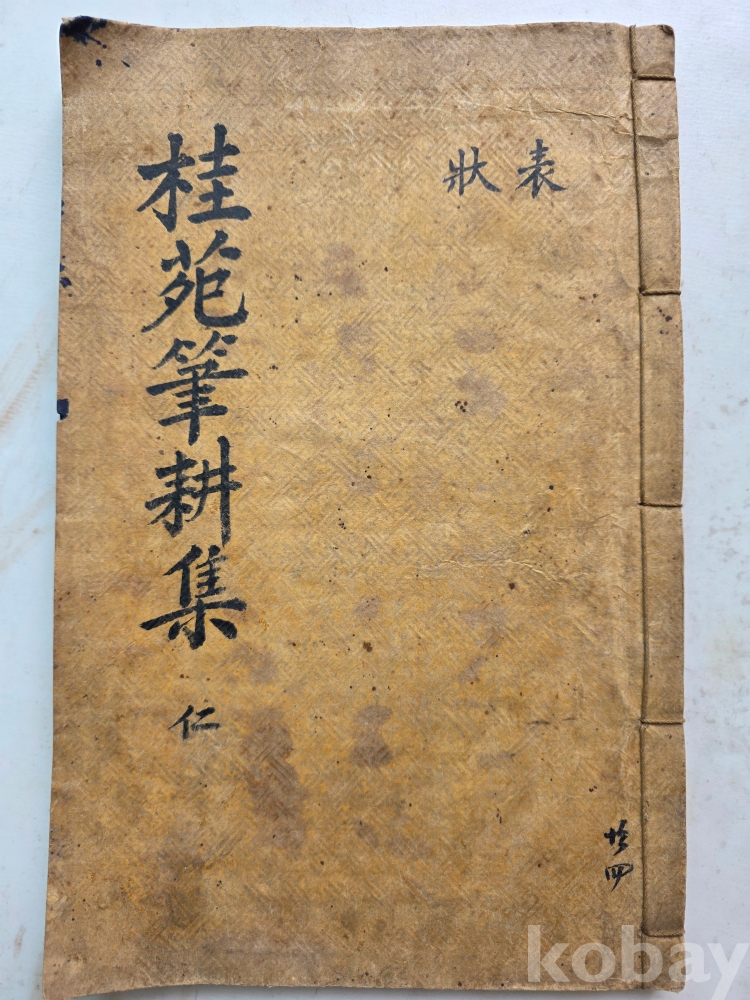 表
狀
桂苑筆耕集
仁
共四
kobay